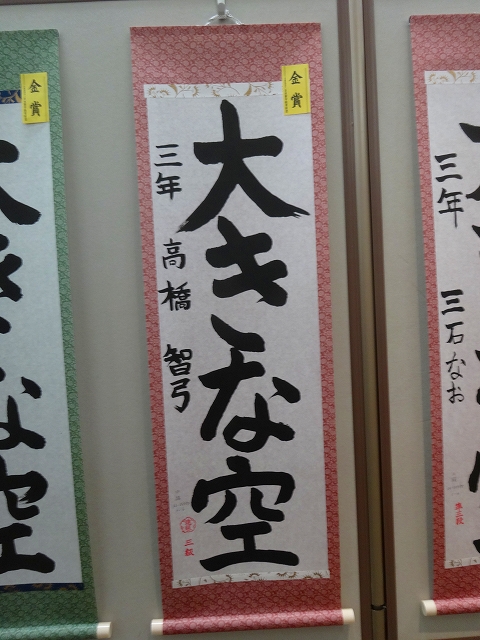 金賞
大きな空
三年 高橋 智弓
三級
金賞
大きな空
三年 三石なお
準三段